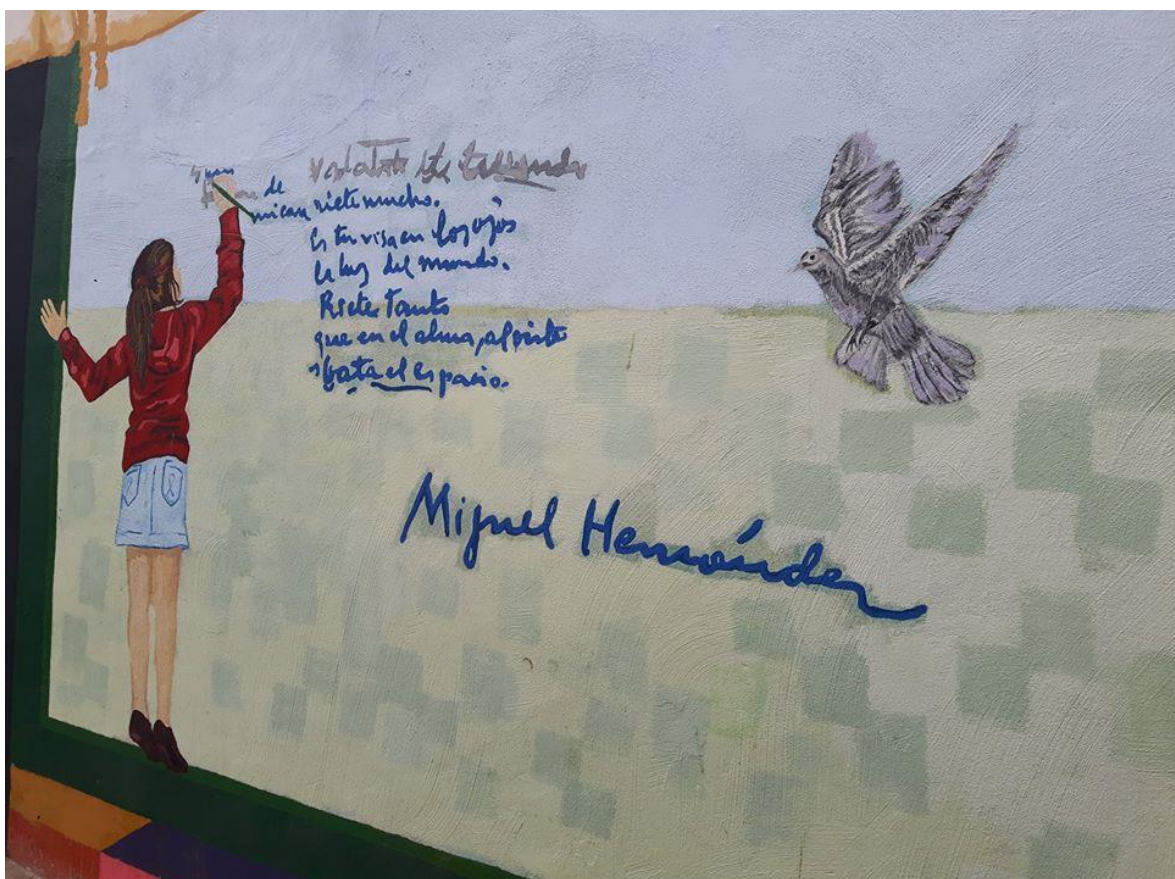 de
riete mucho.
Es tu risa en los ojos
la luz del mundo.
Riete tanto
que en el alma, al oirte
bata el espacio.
Miguel Hernández